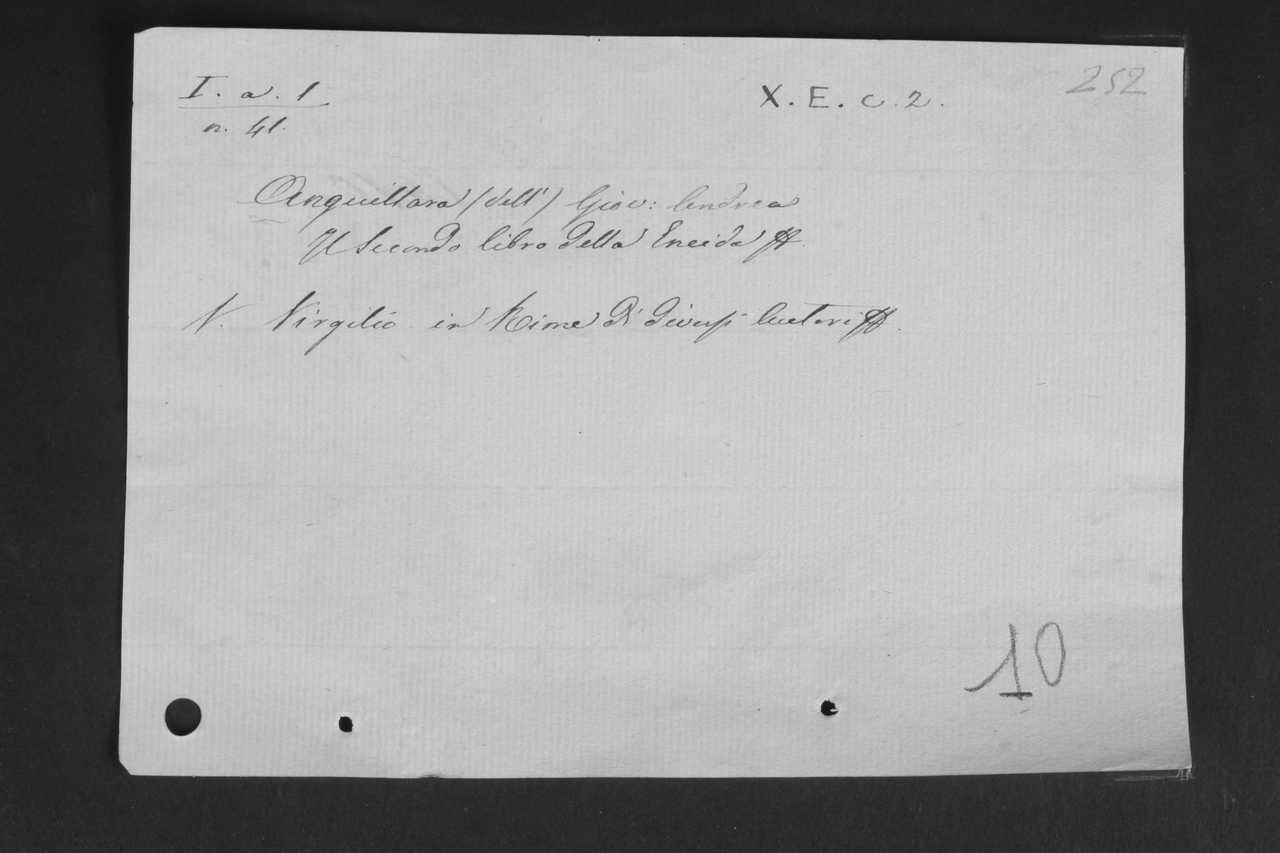 I. a. 1
X. E. c. 2.
252
n. 41.
Anguillara (dell') Giov: Andrea
Il Secondo libro della Eneida
V. Virgilio in Rime di diversi Autori
10